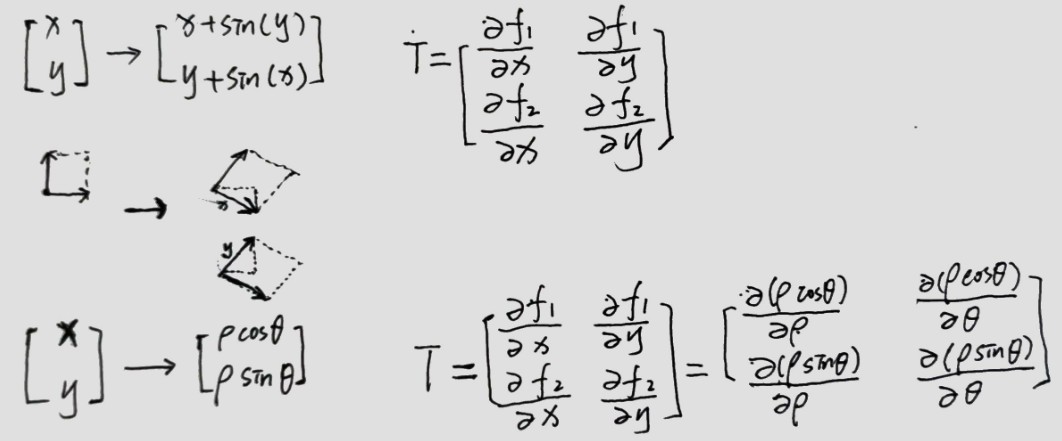 [x y] → [x+sin(y) y+sin(x)]
T = [∂f₁/∂x ∂f₁/∂y ∂f₂/∂x ∂f₂/∂y]
x
y
[x y] → [ρcosθ ρsinθ]
T = [∂f₁/∂x ∂f₁/∂y ∂f₂/∂x ∂f₂/∂y] = [∂(ρcosθ)/∂ρ ∂(ρcosθ)/∂θ ∂(ρsinθ)/∂ρ ∂(ρsinθ)/∂θ]